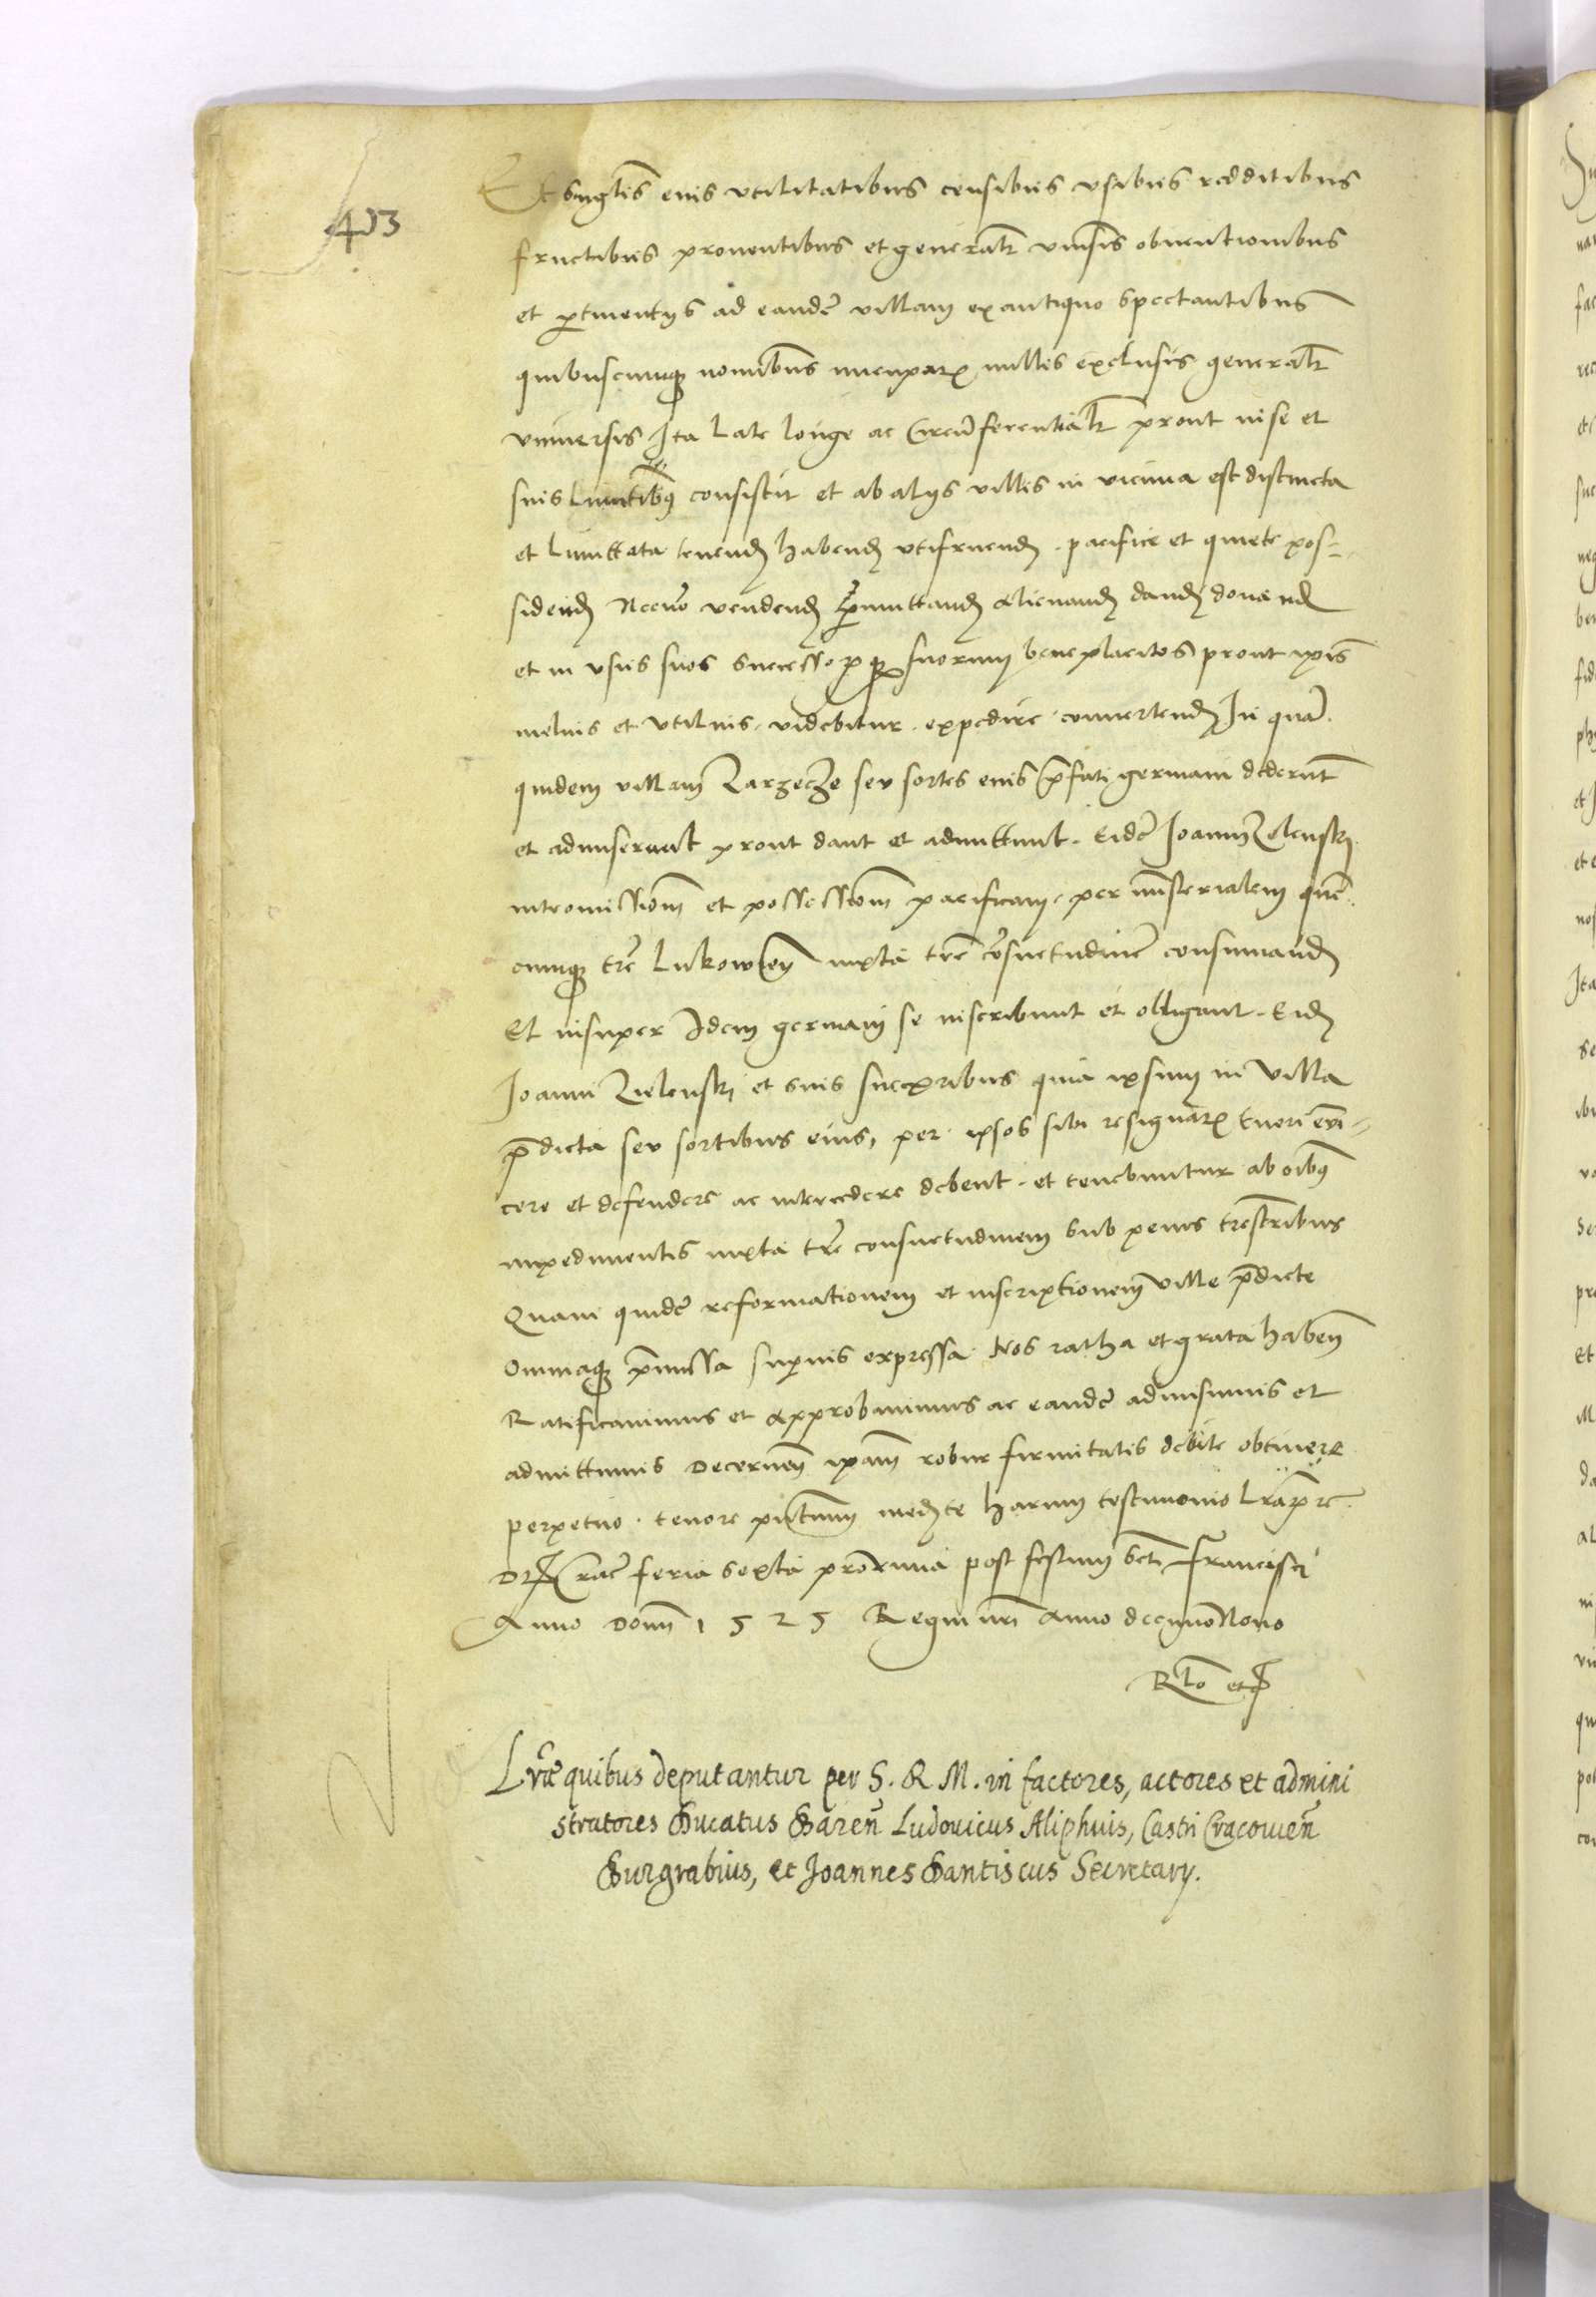 413
Et singlis eius vtilitatibus censibus vsibus redditibus
fructibus prouentibus et generalr vniusis obuentionibus
et ptinentys ad eandē villam exantiquo spectantibus
quibuscumqz nominibus nuncupatꝝ nullis exclusis generalr
vniuersis Ita late longe ac Circūferentialr prout in se et
suis Limitibus consistit et ab alys villis in vicinia est distincta
et limittata tenendꝫ habendꝫ vtifruendꝫ pacifice et quiete pos=
sidendꝫ Necnō vendendꝫ pmuttandꝫ alienandꝫ dandꝫ donand
et in vsus suos successoꝝqꝫ suorum beneplacitos prout ipis
melius et vtilius videbitur expedire conuertendꝫ In quā
quidem villam Zarzecze seu sortes eius pfati germani dederūt
et admiserunt prout dant et admittunt. Eidē Ioanni Zelenski
intromissiōm et possessiōm pacificam per mīsterialem quē
cumqꝫ trē Lukowień iuxta trē cōsuetudinē consumandꝫ
Et insuper Idem germani se inscribunt et obligant. Eidꝫ
Ioanni Zielenski et suis succrībus quia ipsum in villa
pdicta seu sortibus eius, per ipsos sibi resignatꝝ tueri evi=
cere et defendere ac intercedere debent et tenebuntur ab oībus
impedimentis iuxta trē consuetudinem sub penis trēstribus
Quam quidē reformationem et inscriptionem ville pdicte
omniaqꝫ pmissa superius expressa Nos ratha et grata habeñ
Ratificauimus et approbauimus ac eandē admisimus et
admittimus decerneñ ipam robur firmitatis debite obtinere
perpetuo tenore pntium medꝫte harum testimonio lrarꝝ
Dt Crac̄ feria sexta proxima post festum scti Francisci
Anno Domi 1525 Regni nri Anno decimonono
Rlo etc
Lrae quibus deputantur per S. R. M. in factores, actores et admini
stratores Ducatus Bareñ Ludouicus Aliphuis, Castri Cracouieñ
Burgrabius, et Joannes Dantiscus Secretary.